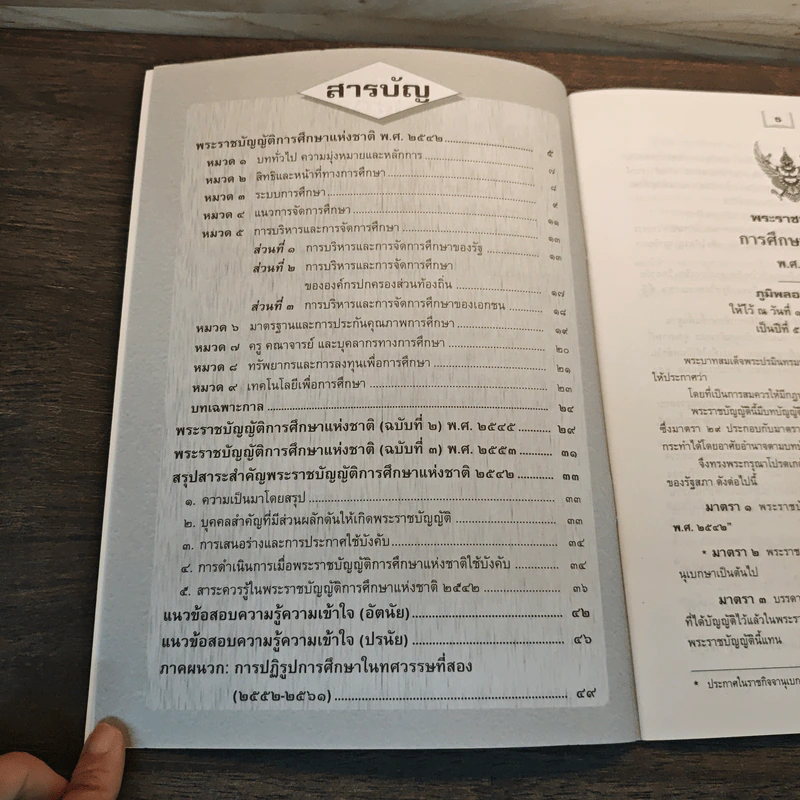 สารบัญ
พระราชบัญญัติการศึกษาแห่งชาติ พ.ศ. ๒๕๔๒ ๕
หมวด ๑ บททั่วไป ความมุ่งหมายและหลักการ ๗
หมวด ๒ สิทธิและหน้าที่ทางการศึกษา ๘
หมวด ๓ ระบบการศึกษา ๙
หมวด ๔ แนวการจัดการศึกษา ๑๑
หมวด ๕ การบริหารและการจัดการศึกษา ๑๓
ส่วนที่ ๑ การบริหารและการจัดการศึกษาของรัฐ ๑๓
ส่วนที่ ๒ การบริหารและการจัดการศึกษา
ขององค์กรปกครองส่วนท้องถิ่น ๑๗
ส่วนที่ ๓ การบริหารและการจัดการศึกษาของเอกชน ๑๘
หมวด ๖ มาตรฐานและการประกันคุณภาพการศึกษา ๑๙
หมวด ๗ ครู คณาจารย์ และบุคลากรทางการศึกษา ๒๐
หมวด ๘ ทรัพยากรและการลงทุนเพื่อการศึกษา ๒๑
หมวด ๙ เทคโนโลยีเพื่อการศึกษา ๒๓
บทเฉพาะกาล ๒๔
พระราชบัญญัติการศึกษาแห่งชาติ (ฉบับที่ ๒) พ.ศ. ๒๕๔๕ ๒๙
พระราชบัญญัติการศึกษาแห่งชาติ (ฉบับที่ ๓) พ.ศ. ๒๕๕๓ ๓๑
สรุปสาระสำคัญพระราชบัญญัติการศึกษาแห่งชาติ ๒๕๔๒ ๓๓
๑. ความเป็นมาโดยสรุป ๓๓
๒. บุคคลสำคัญที่มีส่วนผลักดันให้เกิดพระราชบัญญัติ ๓๓
๓. การเสนอร่างและการประกาศใช้บังคับ ๓๔
๔. การดำเนินการเมื่อพระราชบัญญัติการศึกษาแห่งชาติใช้บังคับ ๓๔
๕. สาระควรรู้ในพระราชบัญญัติการศึกษาแห่งชาติ ๒๕๔๒ ๓๖
แนวข้อสอบความรู้ความเข้าใจ (อัตนัย) ๔๒
แนวข้อสอบความรู้ความเข้าใจ (ปรนัย) ๔๖
ภาคผนวก: การปฏิรูปการศึกษาในทศวรรษที่สอง
(๒๕๕๒-๒๕๖๑) ๔๙
๑
พระราช
การศึกษา
พ.ศ.
ภูมิพลอ
ให้ไว้ ณ วันที่ ๑
เป็นปีที่ ๕
พระบาทสมเด็จพระปรมินทรม
ให้ประกาศว่า
โดยที่เป็นการสมควรให้มีกฎห
พระราชบัญญัตินี้มีบทบัญญั
ซึ่งมาตรา ๒๙ ประกอบกับมาตรา
กระทำได้โดยอาศัยอำนาจตามบท
จึงทรงพระกรุณาโปรดเก
ของรัฐสภา ดังต่อไปนี้
มาตรา ๑ พระราช
พ.ศ. ๒๕๔๒"
* มาตรา ๒ พระรา
นุเบกษาเป็นต้นไป
มาตรา ๓ บรรดา
ที่ได้บัญญัติไว้แล้วในพระรา
พระราชบัญญัตินี้แทน
* ประกาศในราชกิจจานุเบก